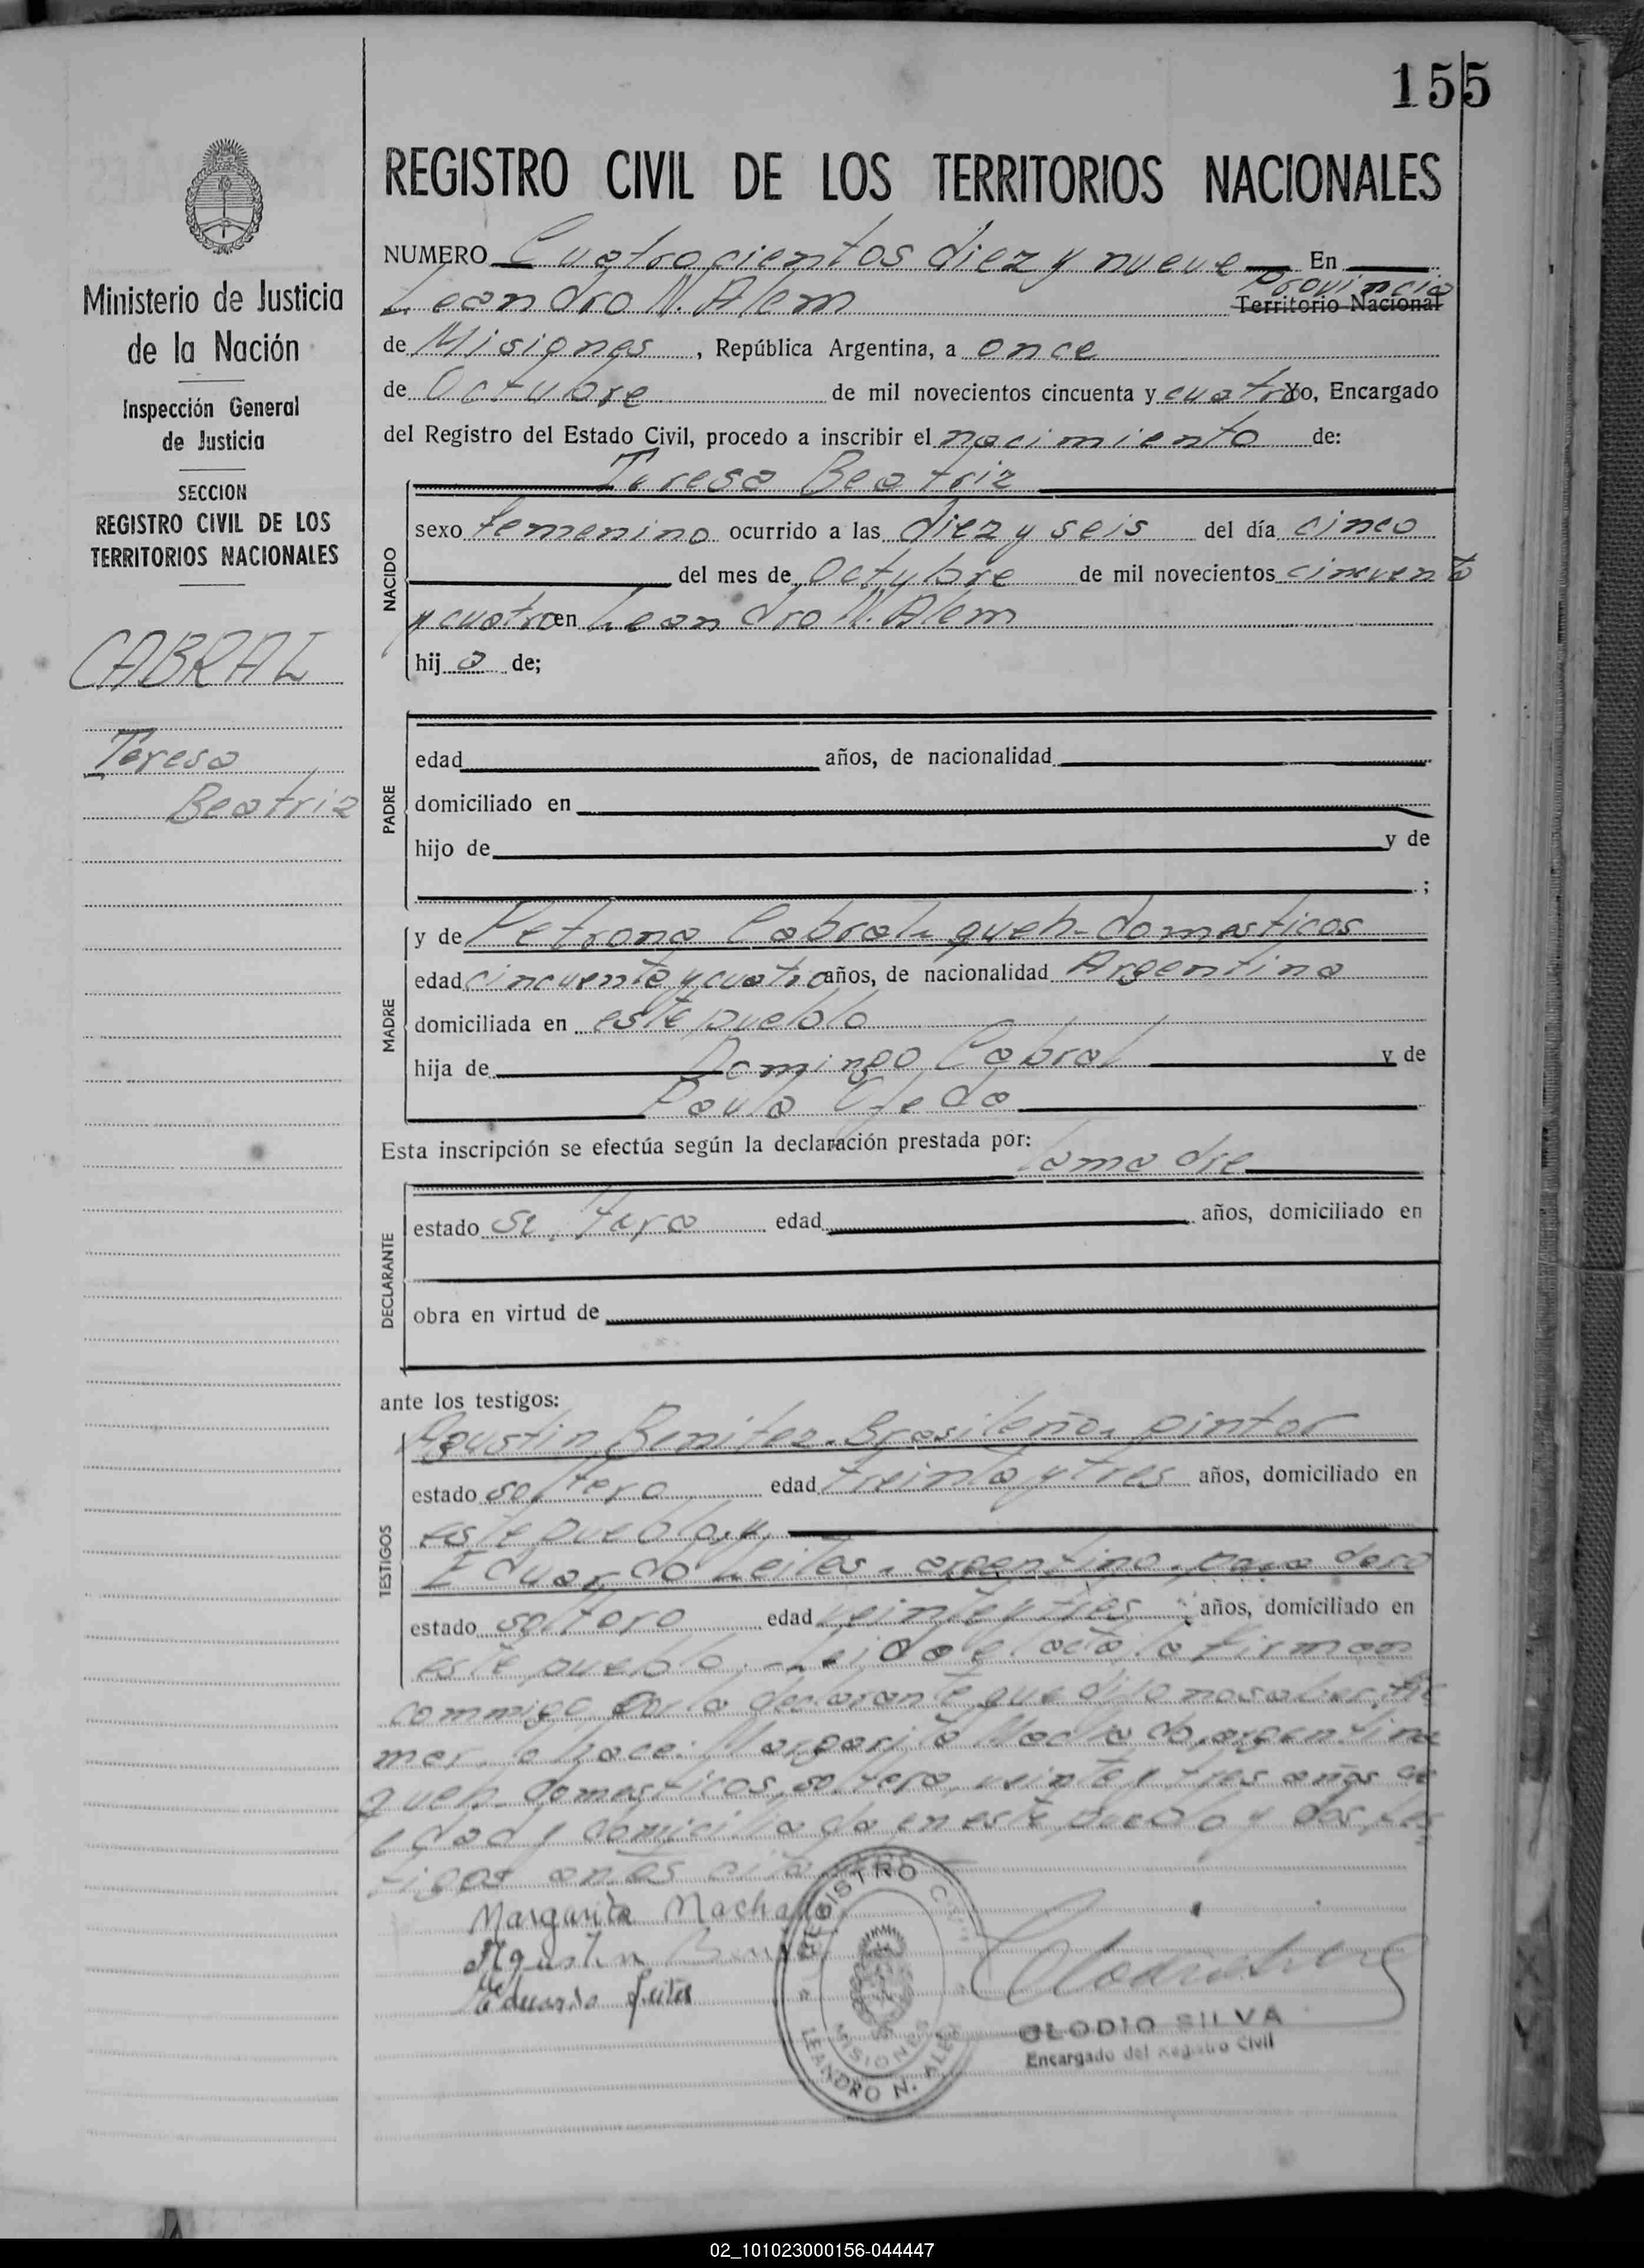 155
REGISTRO CIVIL DE LOS TERRITORIOS NACIONALES
Ministerio de Justicia
de la Nación
Inspección General
de Justicia
SECCION
REGISTRO CIVIL DE LOS
TERRITORIOS NACIONALES
CABRAL
Teresa
Beatriz
NUMERO Cuatrocientos diez y nueve En
Provincia
Leandro N. Alem Territorio Nacional
de Misiones, República Argentina, a once
de Octubre de mil novecientos cincuenta y cuatro Yo, Encargado
del Registro del Estado Civil, procedo a inscribir el nacimiento de:
Teresa Beatriz
NACIDO
sexo femenino ocurrido a las diez y seis del día cinco
del mes de Octubre de mil novecientos cincuenta
y cuatro en Leandro N. Alem
hija de;
PADRE
edad años, de nacionalidad
domiciliado en
hijo de y de
;
MADRE
y de Petrona Cabral, queh. domesticos
edad cincuenta y cuatro años, de nacionalidad Argentina
domiciliada en este pueblo
hija de Domingo Cabral y de
Paula Ojeda
Esta inscripción se efectúa según la declaración prestada por:
la madre
DECLARANTE
estado soltera edad años, domiciliado en
obra en virtud de
ante los testigos:
TESTIGOS
Agustin Benitez. Brasileño, pintor
estado soltero edad treinta y tres años, domiciliado en
este pueblo, y
Eduardo Leites, argentino, panadero
estado soltero edad veinte y tres años, domiciliado en
este pueblo. Leido el acta la firman
conmigo por la declarante que dijo no saber fir
mar lo hace: Margarita Machado, argentina
queh. domesticos, soltera, veinte y tres años de
edad y domiciliada en este pueblo y dos tes
tigos antes
Margarita Machado
Agustin Benitez
Eduardo Leites
REGISTRO CIVIL
MISIONES
LEANDRO N. ALEM
CLODIO SILVA
Encargado del Registro Civil
02_101023000156-044447